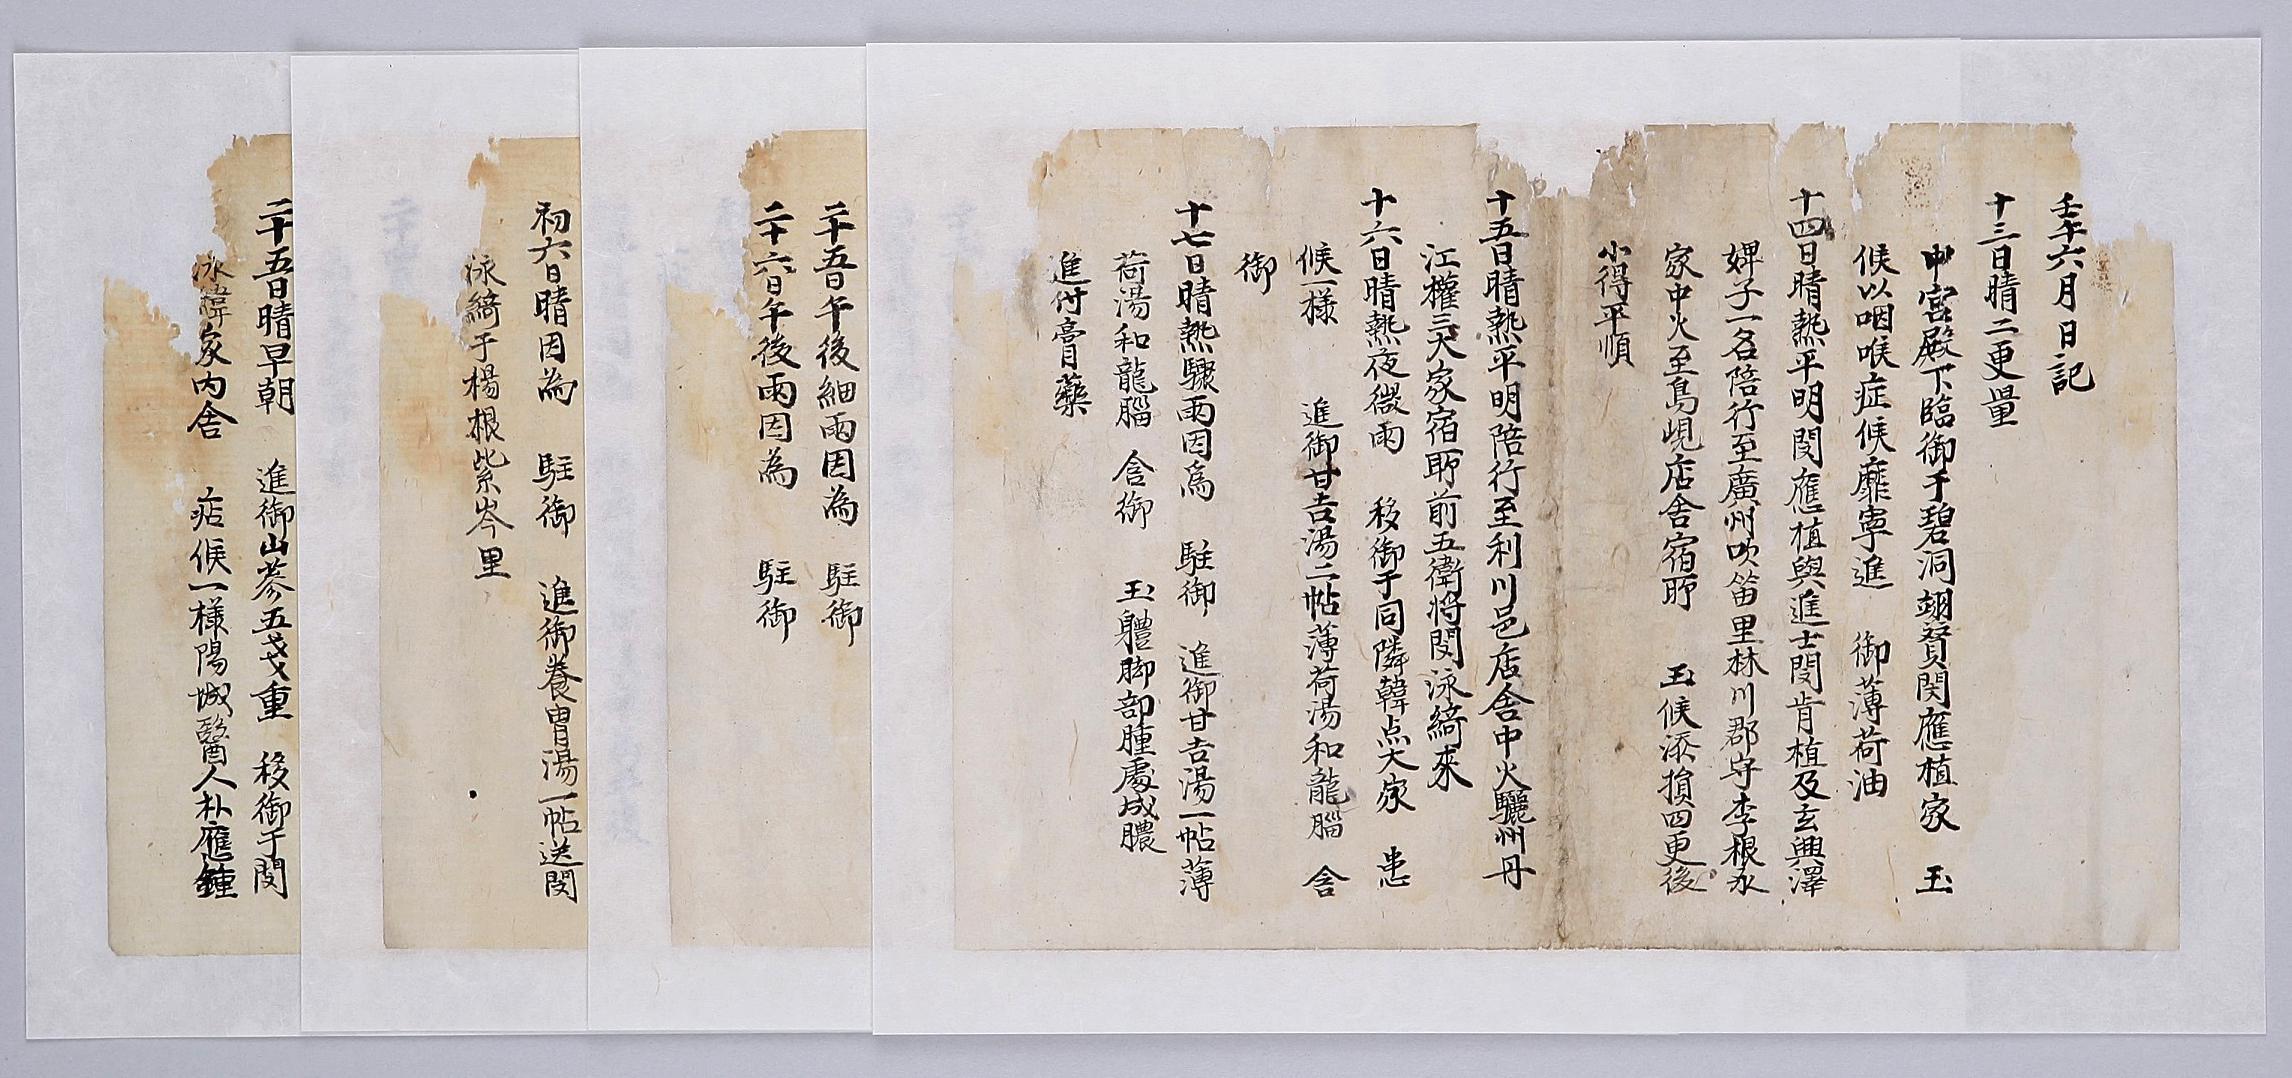 壬午六月日記
十三日晴二更量
中宮殿下臨御于碧洞翊贊閔應植家 玉
候以咽喉症候靡寧進 御薄荷油
十四日晴熱平明閔應植與進士閔肯植及玄興澤
婢子一名陪行至廣州吹笛里林川郡守李根永
家中火至島峴店舍宿所 玉候添損四更後
小得平順
十五日晴熱平明陪行至利川邑店舍中火驪州丹
江權三大家宿所前五衛將閔泳綺來
十六日晴熱夜微雨 移御于同隣韓点大家 患
候一樣 進御甘吉湯二帖薄荷湯和龍腦 含
御
十七日晴熱驟雨因爲 駐御 進御甘吉湯一帖薄
荷湯和龍腦 含御 玉軆脚部腫處成膿
進付膏藥
二十五日午後細雨因為 駐御
二十六日午後雨因為 駐御
初六日晴因為 駐御 進御養胃湯一帖送閔
泳綺于楊根紫岑里
二十五日晴早朝 進御山蔘五戔重 移御于閔
泳緯家內舍 痁候一樣陽城醫人朴應鍾